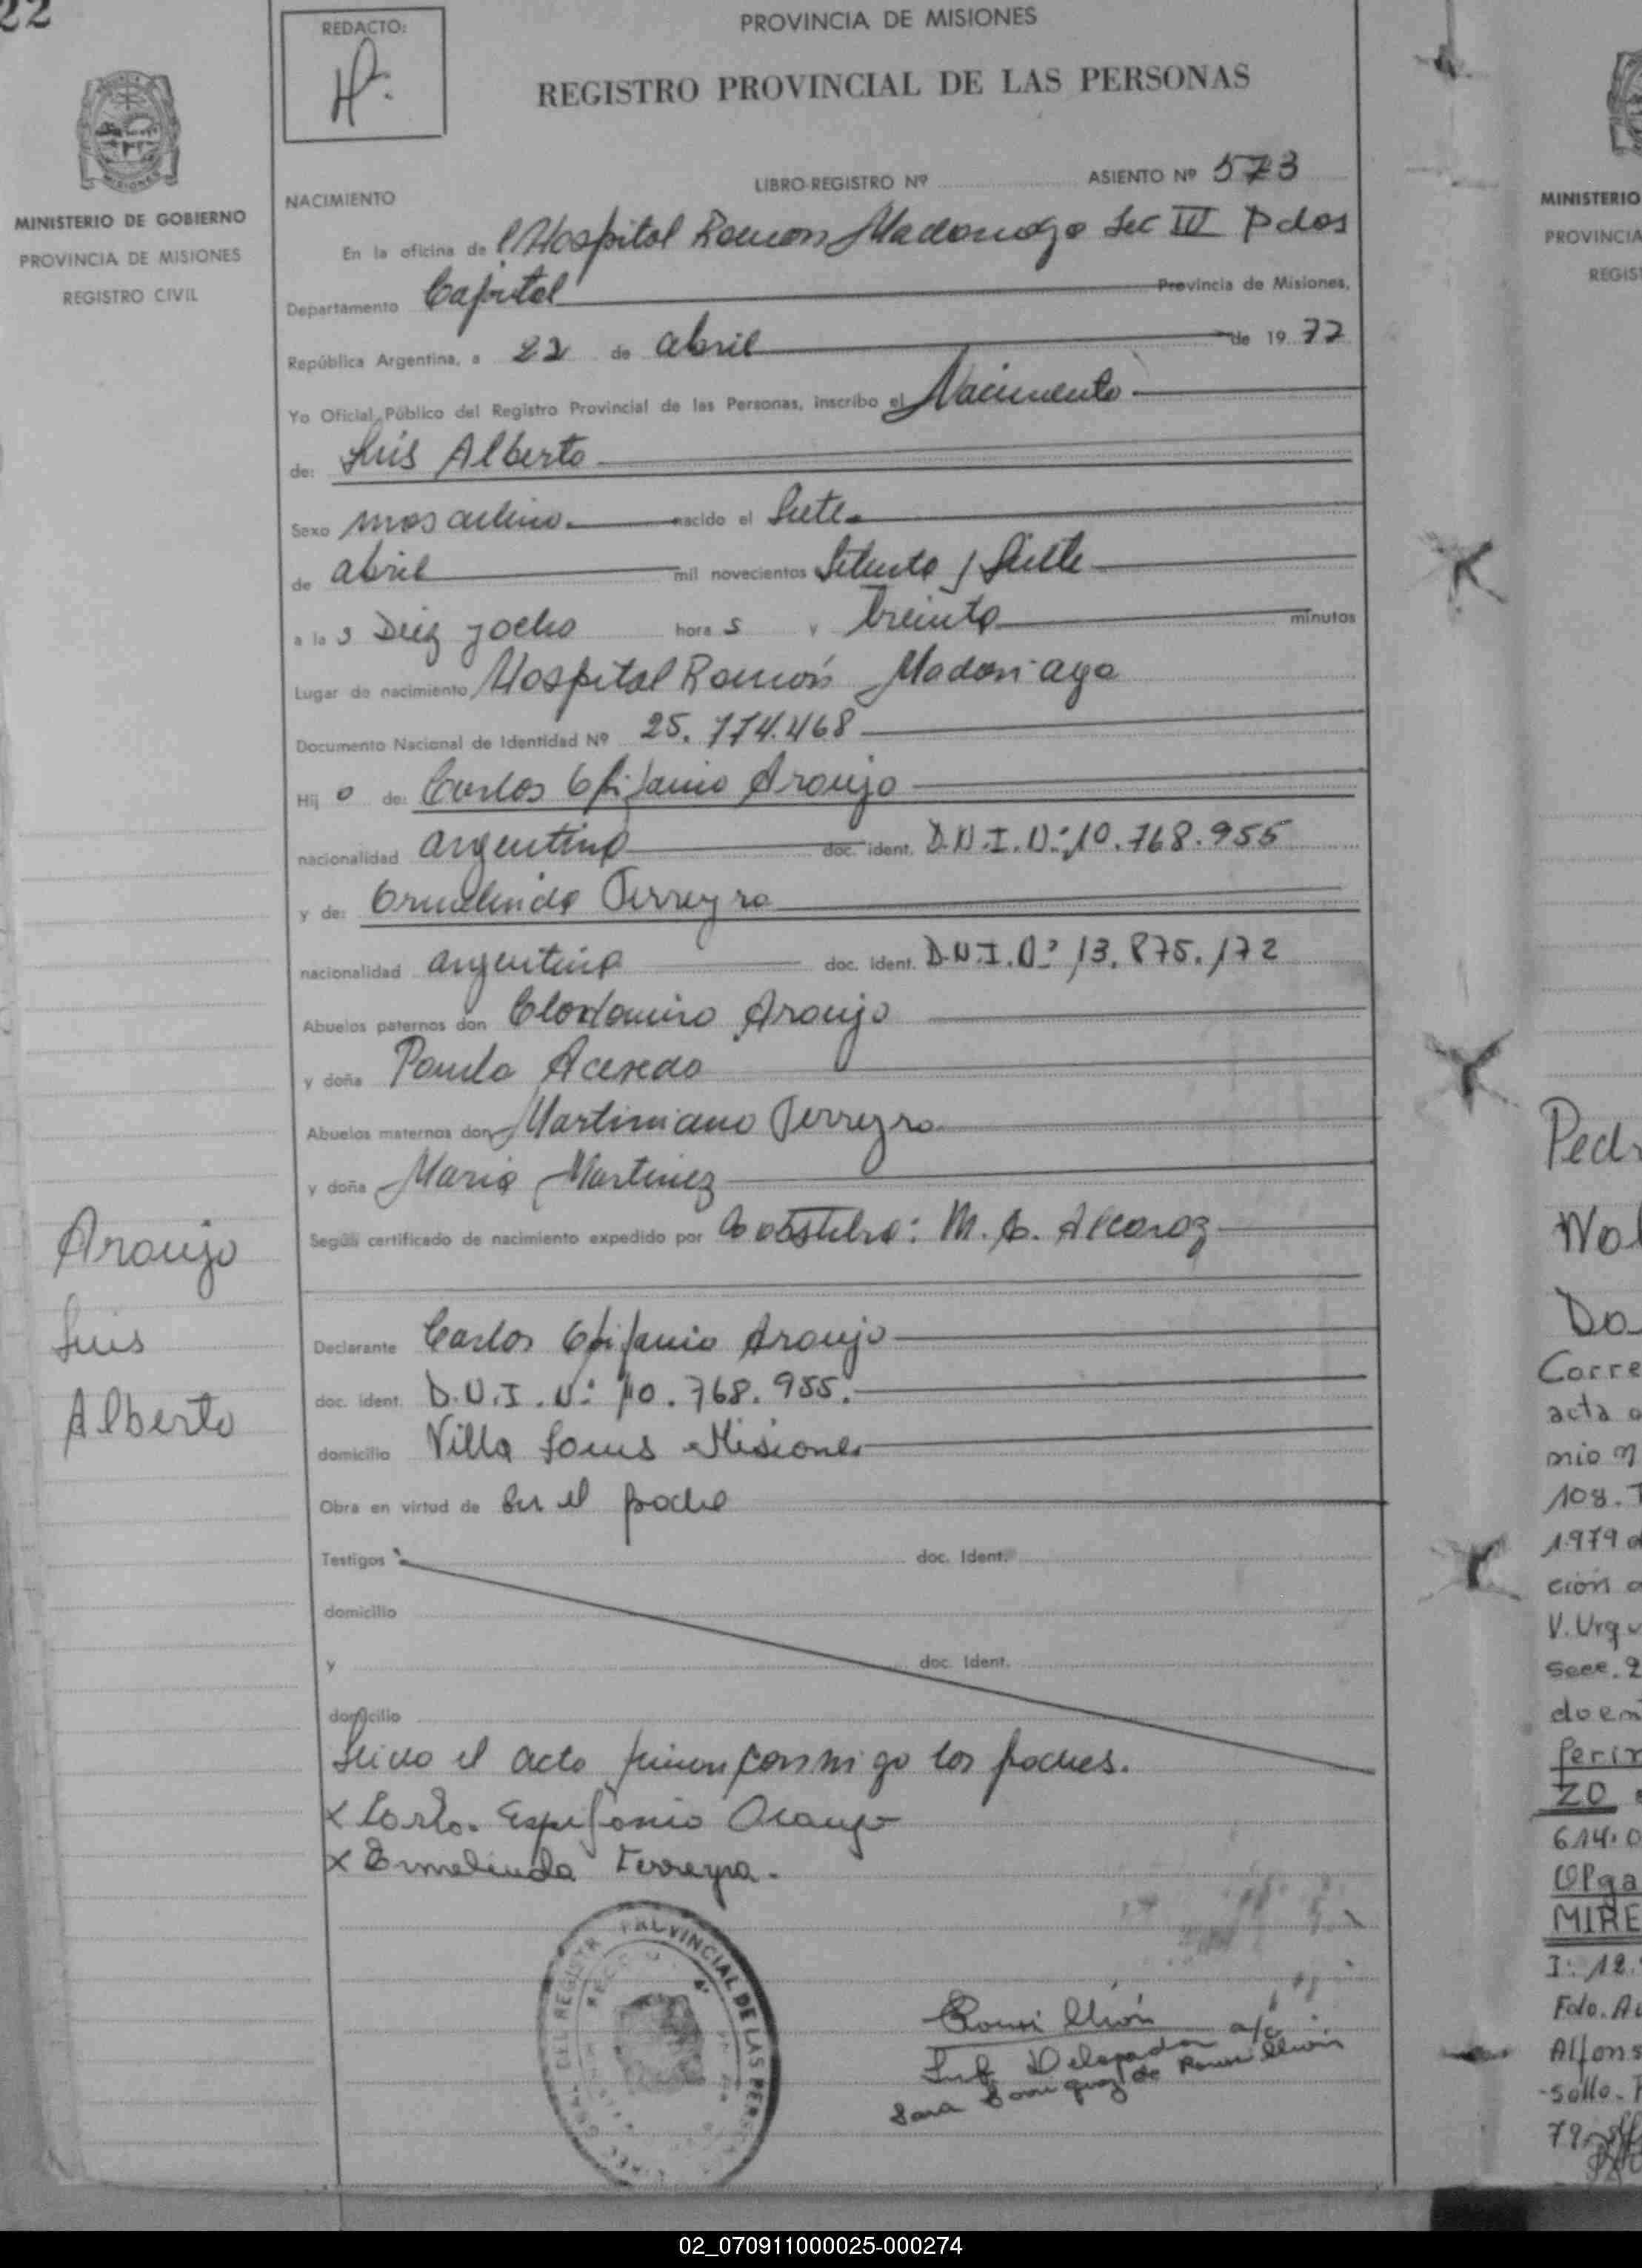 22
REDACTO:
PROVINCIA DE MISIONES
REGISTRO PROVINCIAL DE LAS PERSONAS
MISIONES
MINISTERIO DE GOBIERNO
PROVINCIA DE MISIONES
REGISTRO CIVIL
NACIMIENTO
LIBRO-REGISTRO Nº ASIENTO Nº 573
En la oficina del Hospital Ramon Madariaga Sec III Pdas
Departamento Capital Provincia de Misiones,
República Argentina, a 22 de abril de 1977
Yo Oficial Público del Registro Provincial de las Personas, inscribo el Nacimiento
de: Luis Alberto
Sexo masculino. nacido el Siete
de abril mil novecientos Setenta y Siete
a las Diez y ocho horas y treinta minutos
Lugar de nacimiento Hospital Ramón Madariaga
Documento Nacional de Identidad Nº 25.774.468
Hijo de: Carlos Epifanio Araujo
nacionalidad argentina doc. ident. D.N.I.Nº: 10.768.955
y de: Ermelinda Ferreyra
nacionalidad argentina doc. ident. D.N.I.Nº 13.875.172
Abuelos paternos don Clodomiro Araujo
y doña Ramla Acevedo
Abuelos maternos don Martiniano Ferreyra
y doña Maria Martinez
Según certificado de nacimiento expedido por la obstetra: M. Alcaraz
Declarante Carlos Epifanio Araujo
doc. ident. D.N.I.Nº: 10.768.955.
domicilio Villa Lanus Misiones
Obra en virtud de Ser el padre
Testigos doc. Ident.
domicilio
y doc. Ident.
domicilio
Leido el acto firman conmigo los padres.
x Carlo. Espifanio Araujo
x Ermelinda Ferreyra.
Araujo
Luis
Alberto
PROVINCIAL DE LAS PERS
Sub Delegador a/c
Sara
MINISTERIO
PROVINCIA
REGIS
Pedr
Wal
Do
Corre
acta
mio
108.
1979
ción
V. Urqu
Secc. 2
do en
ferir
ZO
614.0
Olga
MIRE
I: 12.
Fdo. Al
Alfons
-sello.
79
02_070911000025-000274